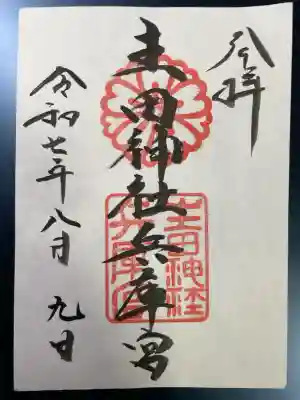 奉拝
生田神社兵庫宮
生田神社
兵庫宮
令和七年八月九日